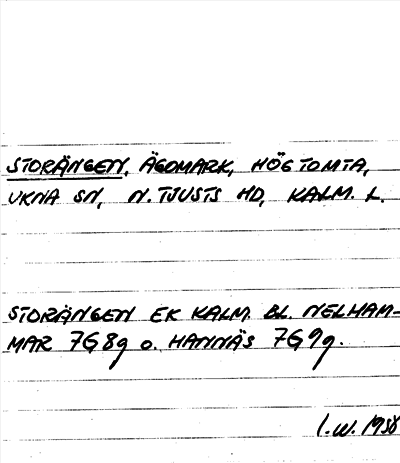 STORÄNGEN, ÄGOMARK, HÖGTOMTA,
UKNA SN, N. TJUSTS HD, KALM. L.
STORÄNGEN EK KALM. BL. NELHAM-
MAR 7G8g o. HANNÄS 7G9g.
I.W. 1958